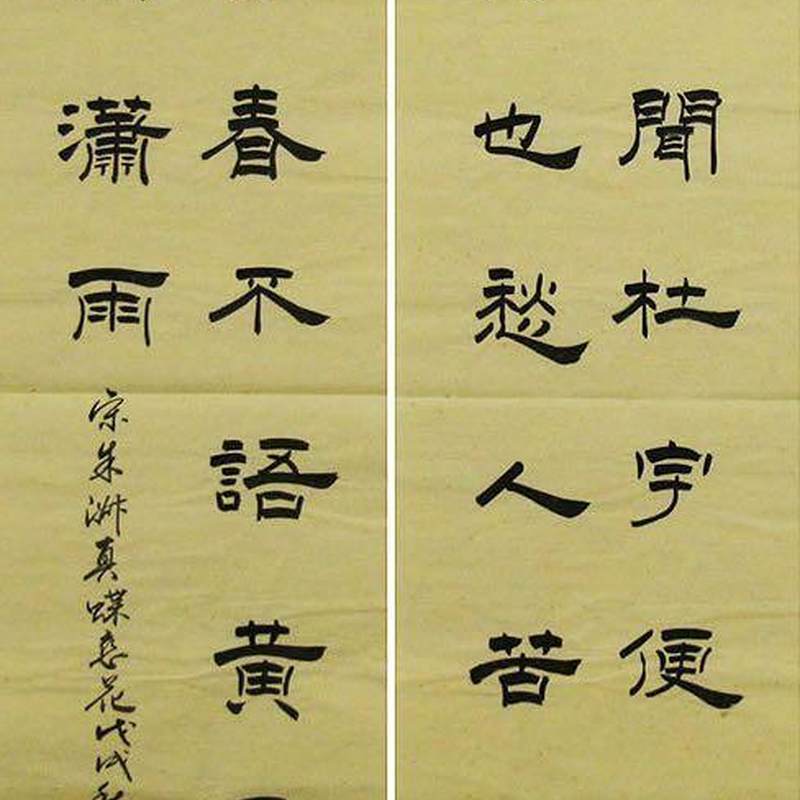 聞杜宇便
也愁人苦
春不語黄
瀟雨
宋朱淑真蝶恋花戊戌